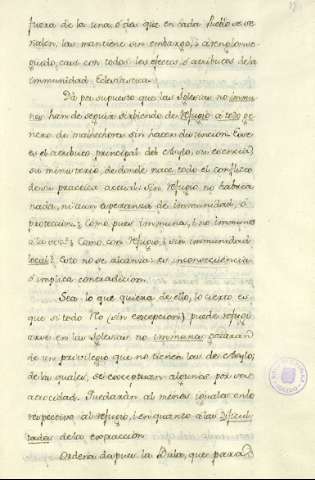 fuera de la una ó dos que en cada Pueblo se se-
ñalen, las mantiene sin embargo, i
con todos los efectos i atributos de la
immunidad Eclesiastica.
Dá por supuesto que las Iglesias no immu-
nes han de seguir sirviendo de refugio a todo ge-
nero de malhechores sin hacer distincion. Este
es el atributo principal del Asylo, su esencia,
su ministerio, de donde nace todo el conflicto
de su practica actual: sin refugio no habria
nada, ni aun esperanza de immunidad, ó
proteccion. Como pues immunes, i no immunes
a la vez? Como con refugio, i sin immunidad
local? Esto no se alcanza: es inconsecuencia
ó implica contradiccion.
Sea lo que quiera de esto, lo cierto es
que si todo Reo (sin excepcion) puede refugi-
arse en las Iglesias no immunes gozarán
de un privilegio que no tienen las de Asylo;
de las quales se exceptuan algunos por sus
atrocidad. Quedarán al menos iguales en lo
respectivo al refugio, i en quanto a las dificul-
tades de la extraccion.
Ordena despues la Bula, que para